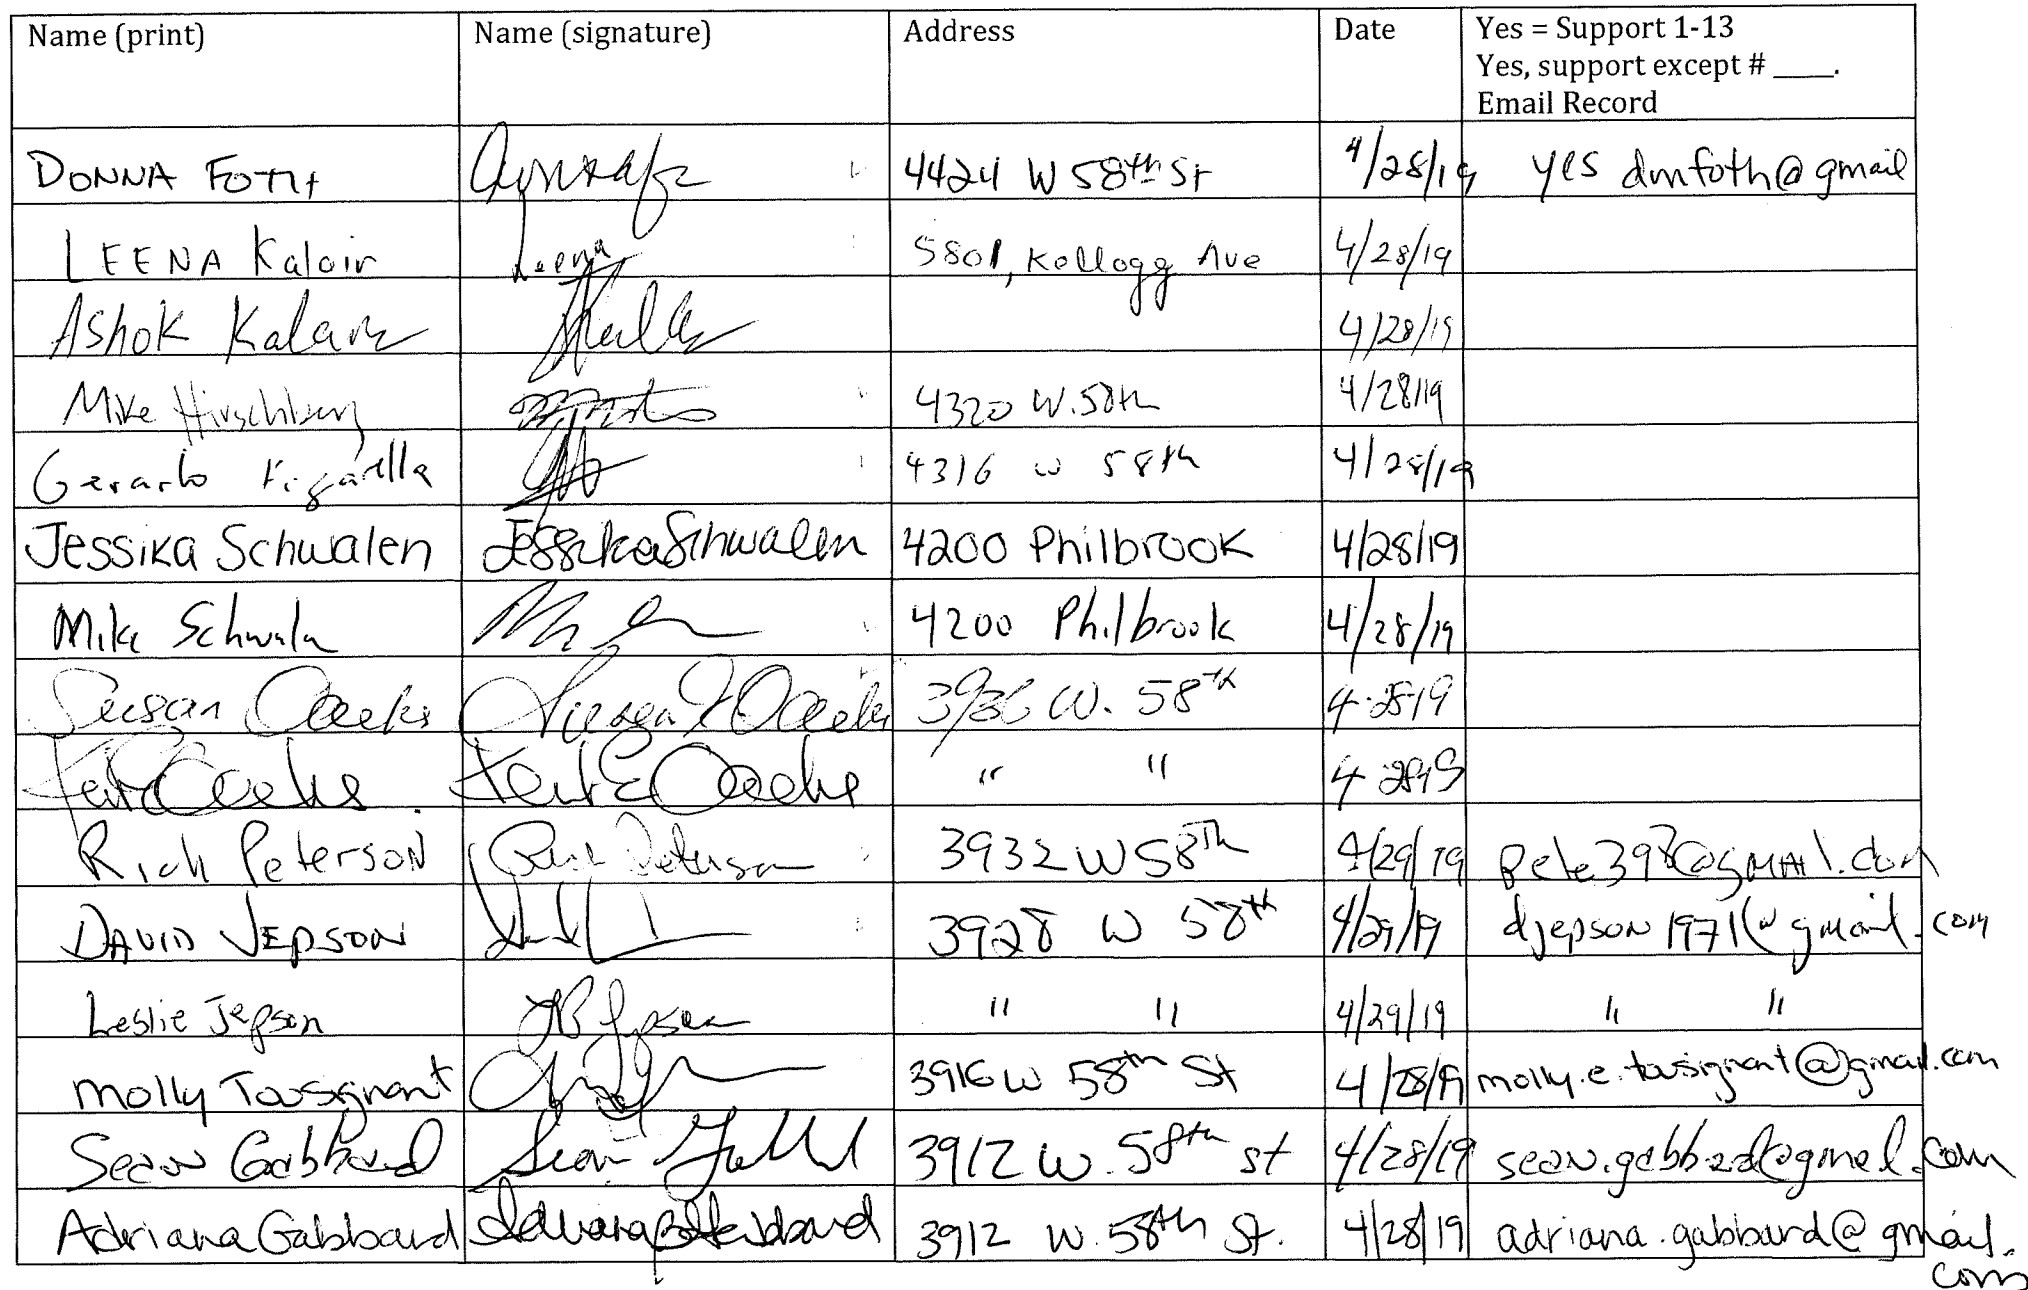 Name (print) Name (signature) Address Date Yes = Support 1-13
Yes, support except # ____.
Email Record
DONNA FOTH 4424 W 58th St 4/28/19 yes dmfoth@gmail
LEENA Kalair Leena 5801, Kellogg Ave 4/28/19
Ashok 4/28/19
Mike 4320 W. 58th 4/28/19
Gerardo Figarella 4316 W 58th 4/28/19
Jessika Schwalen Jessika Schwalen 4200 Philbrook 4/28/19
Mike Schwalen 4200 Philbrook 4/28/19
Susan Susan W. 58th 4-28-19
" " 4-28-19
Rich Peterson Rich Peterson 3932 W 58th 4/29/19
DAVID JEPSON 3928 W 58th 4/29/19 djepson1971@gmail.com
Leslie Jepson Jepson " " 4/29/19 " "
Molly Tousignant 3916 W 58th St 4/28/19 molly.e.tousignant@gmail.com
Sean Gabbard Sean 3912 W. 58th st 4/28/19 sean.gabbard@gmail.com
Adriana Gabbard Adriana B Gabbard 3912 W. 58th St. 4/28/19 adriana.gabbard@gmail.
com